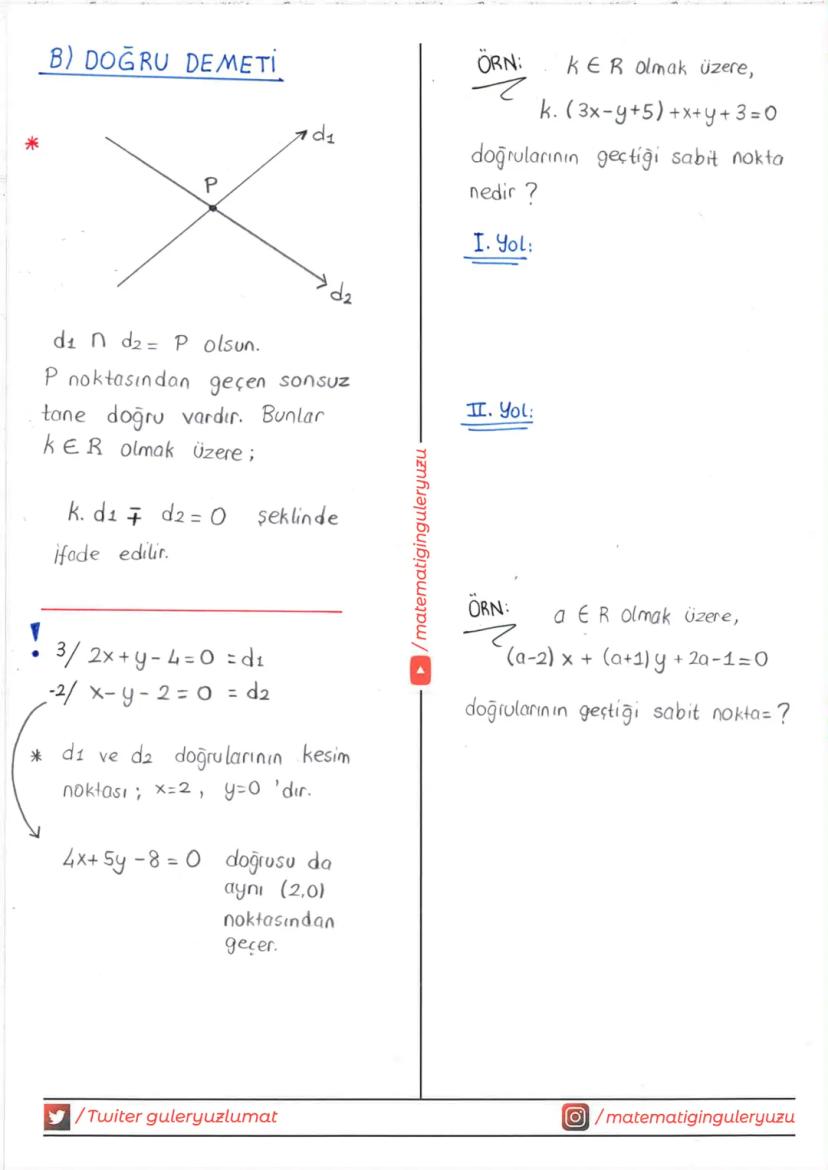 B) DOĞRU DEMETİ
*
d1
P
d2
d1 ∩ d2 = P olsun.
P noktasından geçen sonsuz
tane doğru vardır. Bunlar
k ∈ R olmak üzere ;
k. d1 ∓ d2 = 0 şeklinde
ifade edilir.
! 3/ 2x+y-4=0 = d1
-2/ x-y-2=0 = d2
* d1 ve d2 doğrularının kesim
noktası ; x=2 , y=0 'dır.
4x+5y-8=0 doğrusu da
aynı (2,0)
noktasından
geçer.
/matematiginguleryuzu
ÖRN: k ∈ R olmak üzere,
k. (3x-y+5)+x+y+3=0
doğrularının geçtiği sabit nokta
nedir ?
I. Yol:
II. Yol:
ÖRN: a ∈ R olmak üzere,
(a-2) x + (a+1) y + 2a-1=0
doğrularının geçtiği sabit nokta= ?
/Twiter guleryuzlumat
/matematiginguleryuzu